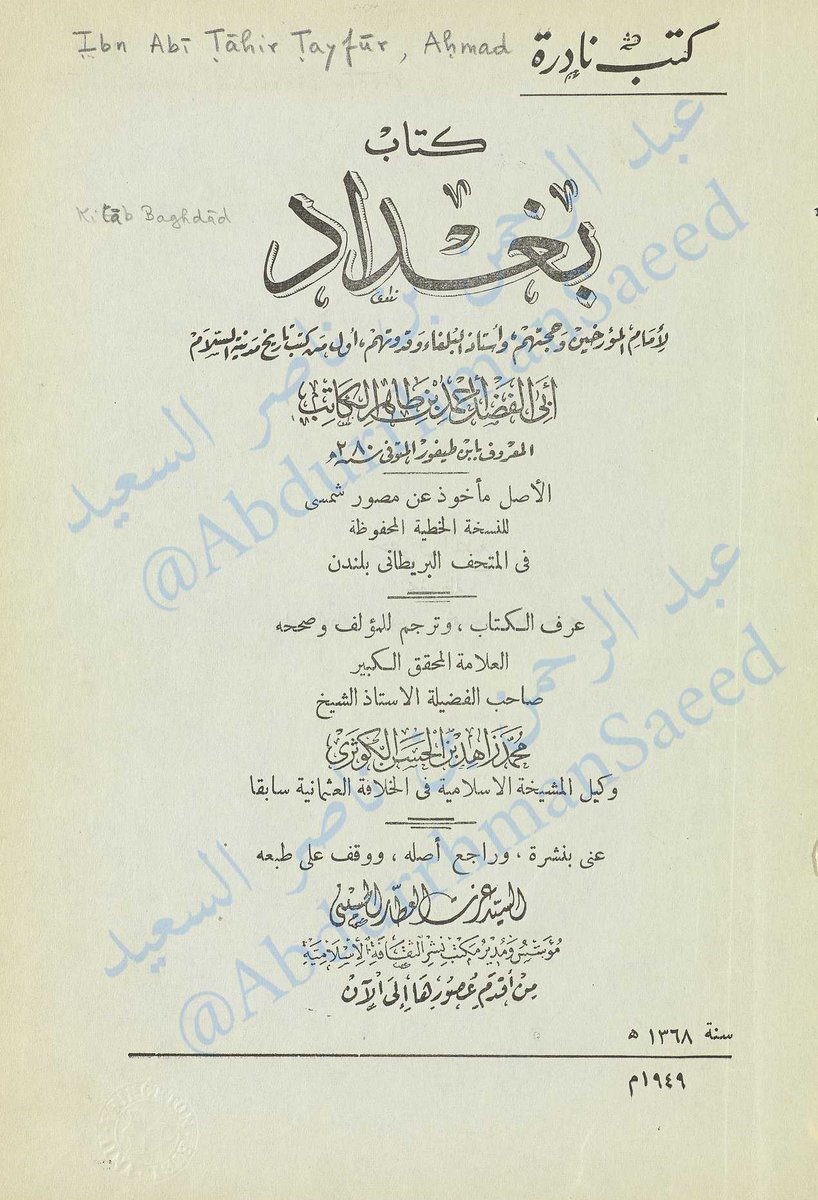 Ibn Abī Ṭāhir Ṭayfūr, Aḥmad
كتب نادرة
كتاب
Kitāb Baghdād
بغداد
لإمام المؤرخين وحجتهم، وأستاذ البلغاء وقدوتهم، أول من كتب تاريخ مدينة السلام
أبي الفضل أحمد بن طاهر الكاتب
المعروف بابن طيفور المتوفى سنة ٢٨٠ هـ
الأصل مأخوذ عن مصور شمسى
للنسخة الخطية المحفوظة
فى المتحف البريطانى بلندن
عرف الكتاب ، وترجم للمؤلف وصححه
العلامة المحقق الكبير
صاحب الفضيلة الاستاذ الشيخ
محمد زاهد بن الحسن الكوثري
وكيل المشيخة الاسلامية فى الخلافة العثمانية سابقا
عنى بنشرة ، وراجع أصله ، ووقف على طبعه
السيد عزت العطار الحسيني
مؤسس ومدير مكتب نشر الثقافة الإسلامية
من أقدم عصورها إلى الآن
سنة ١٣٦٨ ه
١٩٤٩م
عبد الرحمن بن ناصر السعيد
@AbdurrhmanSaeed
عبد الرحمن بن ناصر السعيد
@AbdurrhmanSaeed